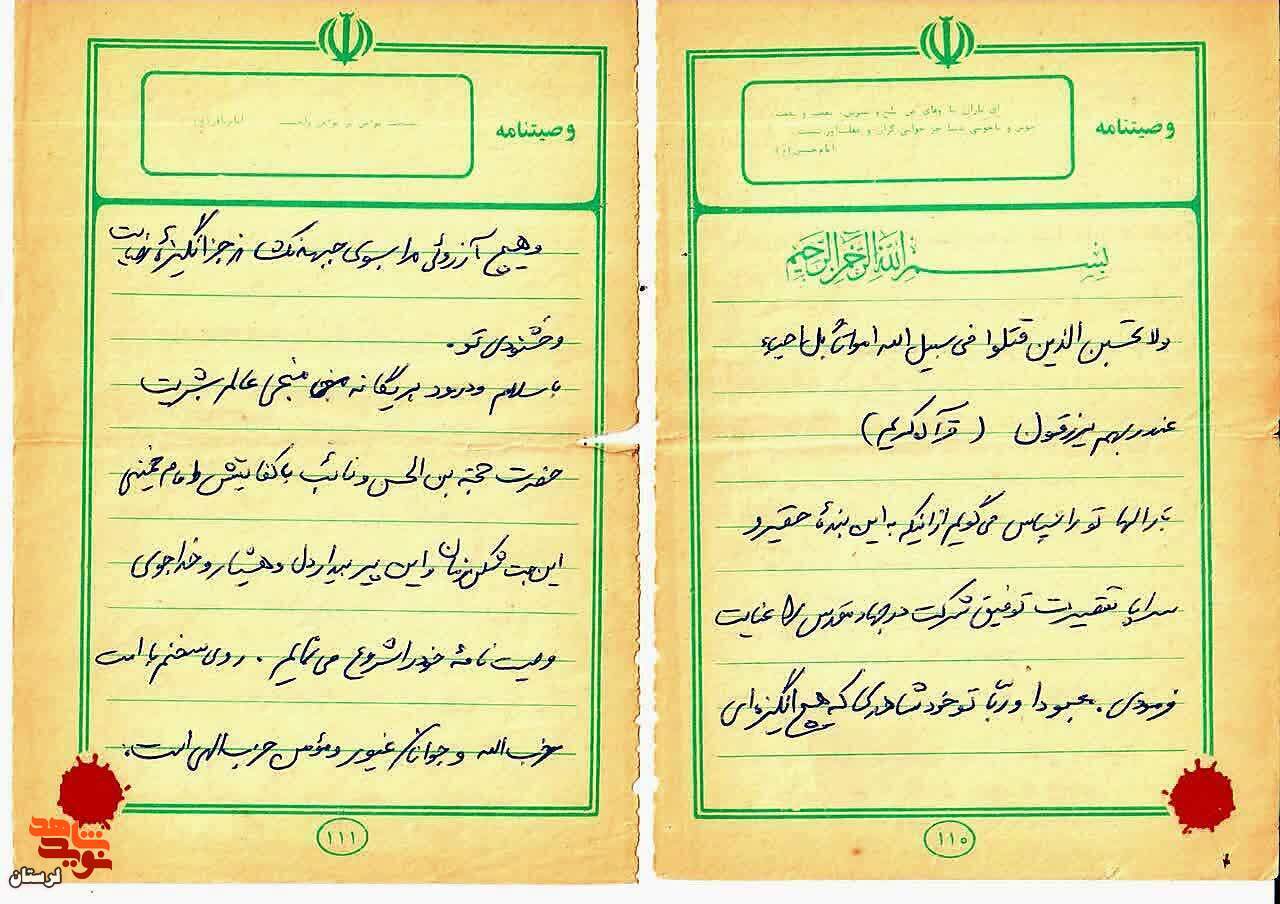 وصیتنامه
امام حسین (ع)
بسم الله الرحمن الرحیم
ولا تحسبن الذین قتلوا فی سبیل الله امواتاً بل احیاء
عند ربهم یرزقون (قرآن کریم)
بارالها تو را سپاس می‌گویم از اینکه به این بندهٔ حقیر و
سراپا تقصیرت توفیق شرکت در جهاد مقدس را عنایت
فرمودی. معبودا و ربّا تو خود شاهدی که هیچ انگیزه‌ای
۱۱۰
وصیتنامه
و هیچ آرزوئی مرا بسوی جبهه نکشاند جز انگیزهٔ رضایت
و خشنودی تو.
با سلام و درود بر یگانه منجی عالم بشریت
حضرت حجة بن الحسن و نائب با کفایتش امام خمینی
این بت شکن زمان و این پیر بیدار دل و هشیار و خداجوی
وصیت نامهٔ خود را شروع می نمایم. روی سخنم با امت
حزب الله و جوانان غیور و مؤمن حزب الهی است.
۱۱۱
نوید شاهد
لرستان